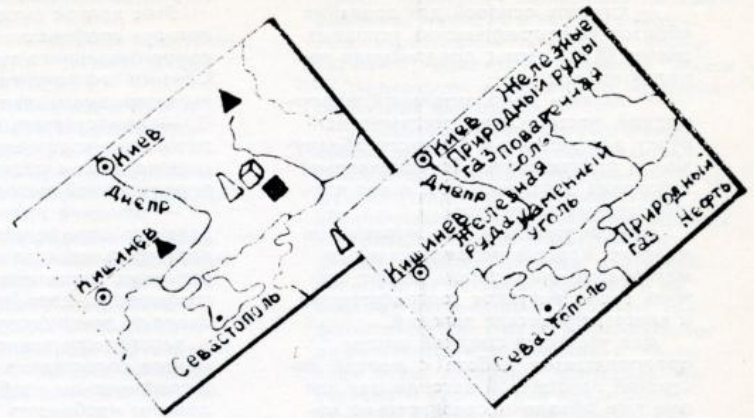 Киев
Днепр
Кишинев
Севастополь
Железные
руды
Природный
газ
поваренная
соль
Киев
Днепр
Железная
руда
Каменный
уголь
Кишинев
Природный
газ
Нефть
Севастополь